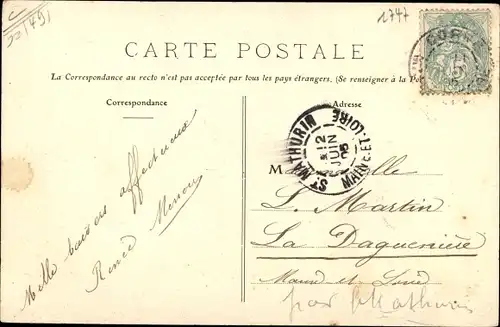 1747
CARTE POSTALE
La Correspondance au recto n'est pas acceptée par tous les pays étrangers. (Se renseigner à la Po
Correspondance
Adresse
ST MATHURIN
12
JUIN
05
MAINE-ET-LOIRE
Mille baisers affectueux
Renée
M elle
L. Martin
La Daguenière
Maine et Loire
par St Mathurin